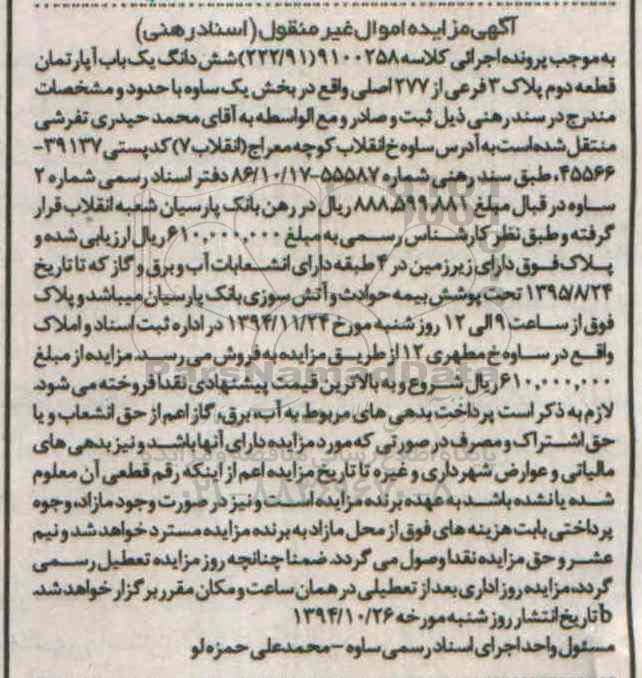 آگهی مزایده اموال غیر منقول (اسناد رهنی)
به موجب پرونده اجرائی کلاسه ۹۱۰۰۲۵۸ (۲۲۲/۹۱) شش دانگ یک باب آپارتمان
قطعه دوم پلاک ۳ فرعی از ۲۷۷ اصلی واقع در بخش یک ساوه با حدود و مشخصات
مندرج در سند رهنی ذیل ثبت و صادر و مع الواسطه به آقای محمد حیدری تفرشی
منتقل شده است به آدرس ساوه خ انقلاب کوچه معراج (انقلاب ۷) کد پستی ۳۹۱۳۷-
۴۵۵۶۶، طبق سند رهنی شماره ۵۵۵۸۷-۸۶/۱۰/۱۷ دفتر اسناد رسمی شماره ۲
ساوه در قبال مبلغ ۸۸۸،۵۹۹،۸۸۱ ریال در رهن بانک پارسیان شعبه انقلاب قرار
گرفته و طبق نظر کارشناس رسمی به مبلغ ۶۱۰،۰۰۰،۰۰۰ ریال ارزیابی شده و
پلاک فوق دارای زیرزمین در ۴ طبقه دارای انشعابات آب و برق و گاز که تا تاریخ
۱۳۹۵/۸/۲۴ تحت پوشش بیمه حوادث و آتش سوزی بانک پارسیان میباشد و پلاک
فوق از ساعت ۹ الی ۱۲ روز شنبه مورخ ۱۳۹۴/۱۱/۲۴ در اداره ثبت اسناد و املاک
واقع در ساوه خ مطهری ۱۲ از طریق مزایده به فروش می رسد. مزایده از مبلغ
۶۱۰،۰۰۰،۰۰۰ ریال شروع و به بالاترین قیمت پیشنهادی نقدا فروخته می شود.
لازم به ذکر است پرداخت بدهی های مربوط به آب، برق، گاز اعم از حق انشعاب و یا
حق اشتراک و مصرف در صورتی که مورد مزایده دارای آنها باشد و نیز بدهی های
مالیاتی و عوارض شهرداری و غیره تا تاریخ مزایده اعم از اینکه رقم قطعی آن معلوم
شده یا نشده باشد به عهده برنده مزایده است و نیز در صورت وجود مازاد، وجوه
پرداختی بابت هزینه های فوق از محل مازاد به برنده مزایده مسترد خواهد شد و نیم
عشر و حق مزایده نقدا وصول می گردد. ضمنا چنانچه روز مزایده تعطیل رسمی
گردد، مزایده روز اداری بعد از تعطیلی در همان ساعت و مکان مقرر برگزار خواهد شد.
b تاریخ انتشار روز شنبه مورخه ۱۳۹۴/۱۰/۲۶
مسئول واحد اجرای اسناد رسمی ساوه - محمدعلی حمزه لو
ParsNamadData